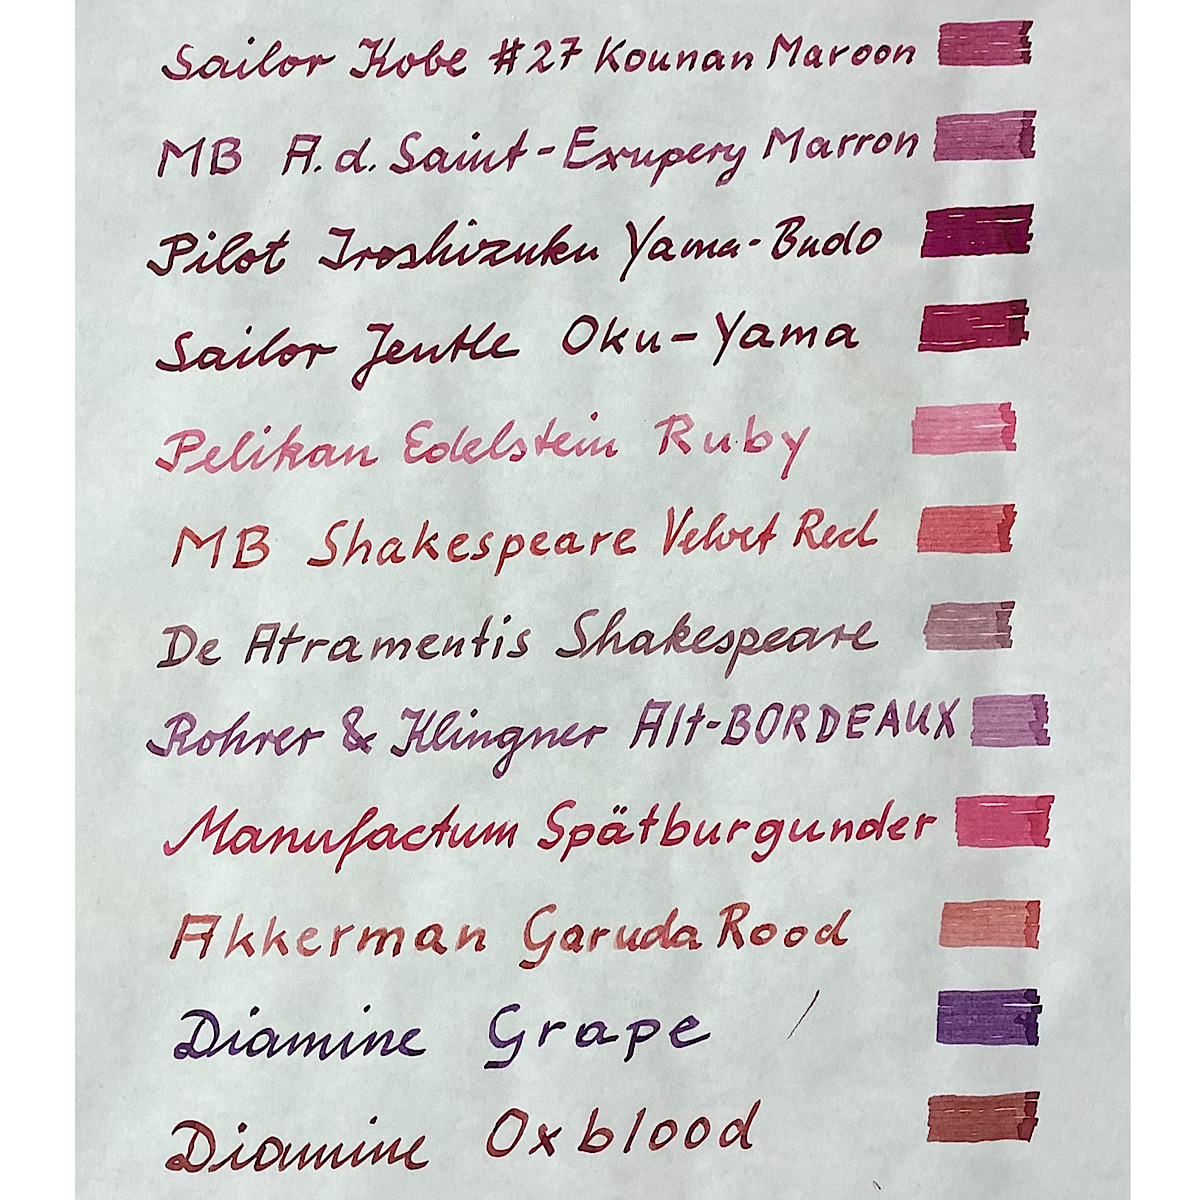 Sailor Kobe #27 Kounan Maroon
MB A.d. Saint-Exupery Marron
Pilot Iroshizuku Yama-Budo
Sailor Jentle Oku-Yama
Pelikan Edelstein Ruby
MB Shakespeare Velvet Red
De Atramentis Shakespeare
Rohrer & Klingner Alt-BORDEAUX
Manufactum Spätburgunder
Akkerman Garuda Rood
Diamine Grape
Diamine Oxblood